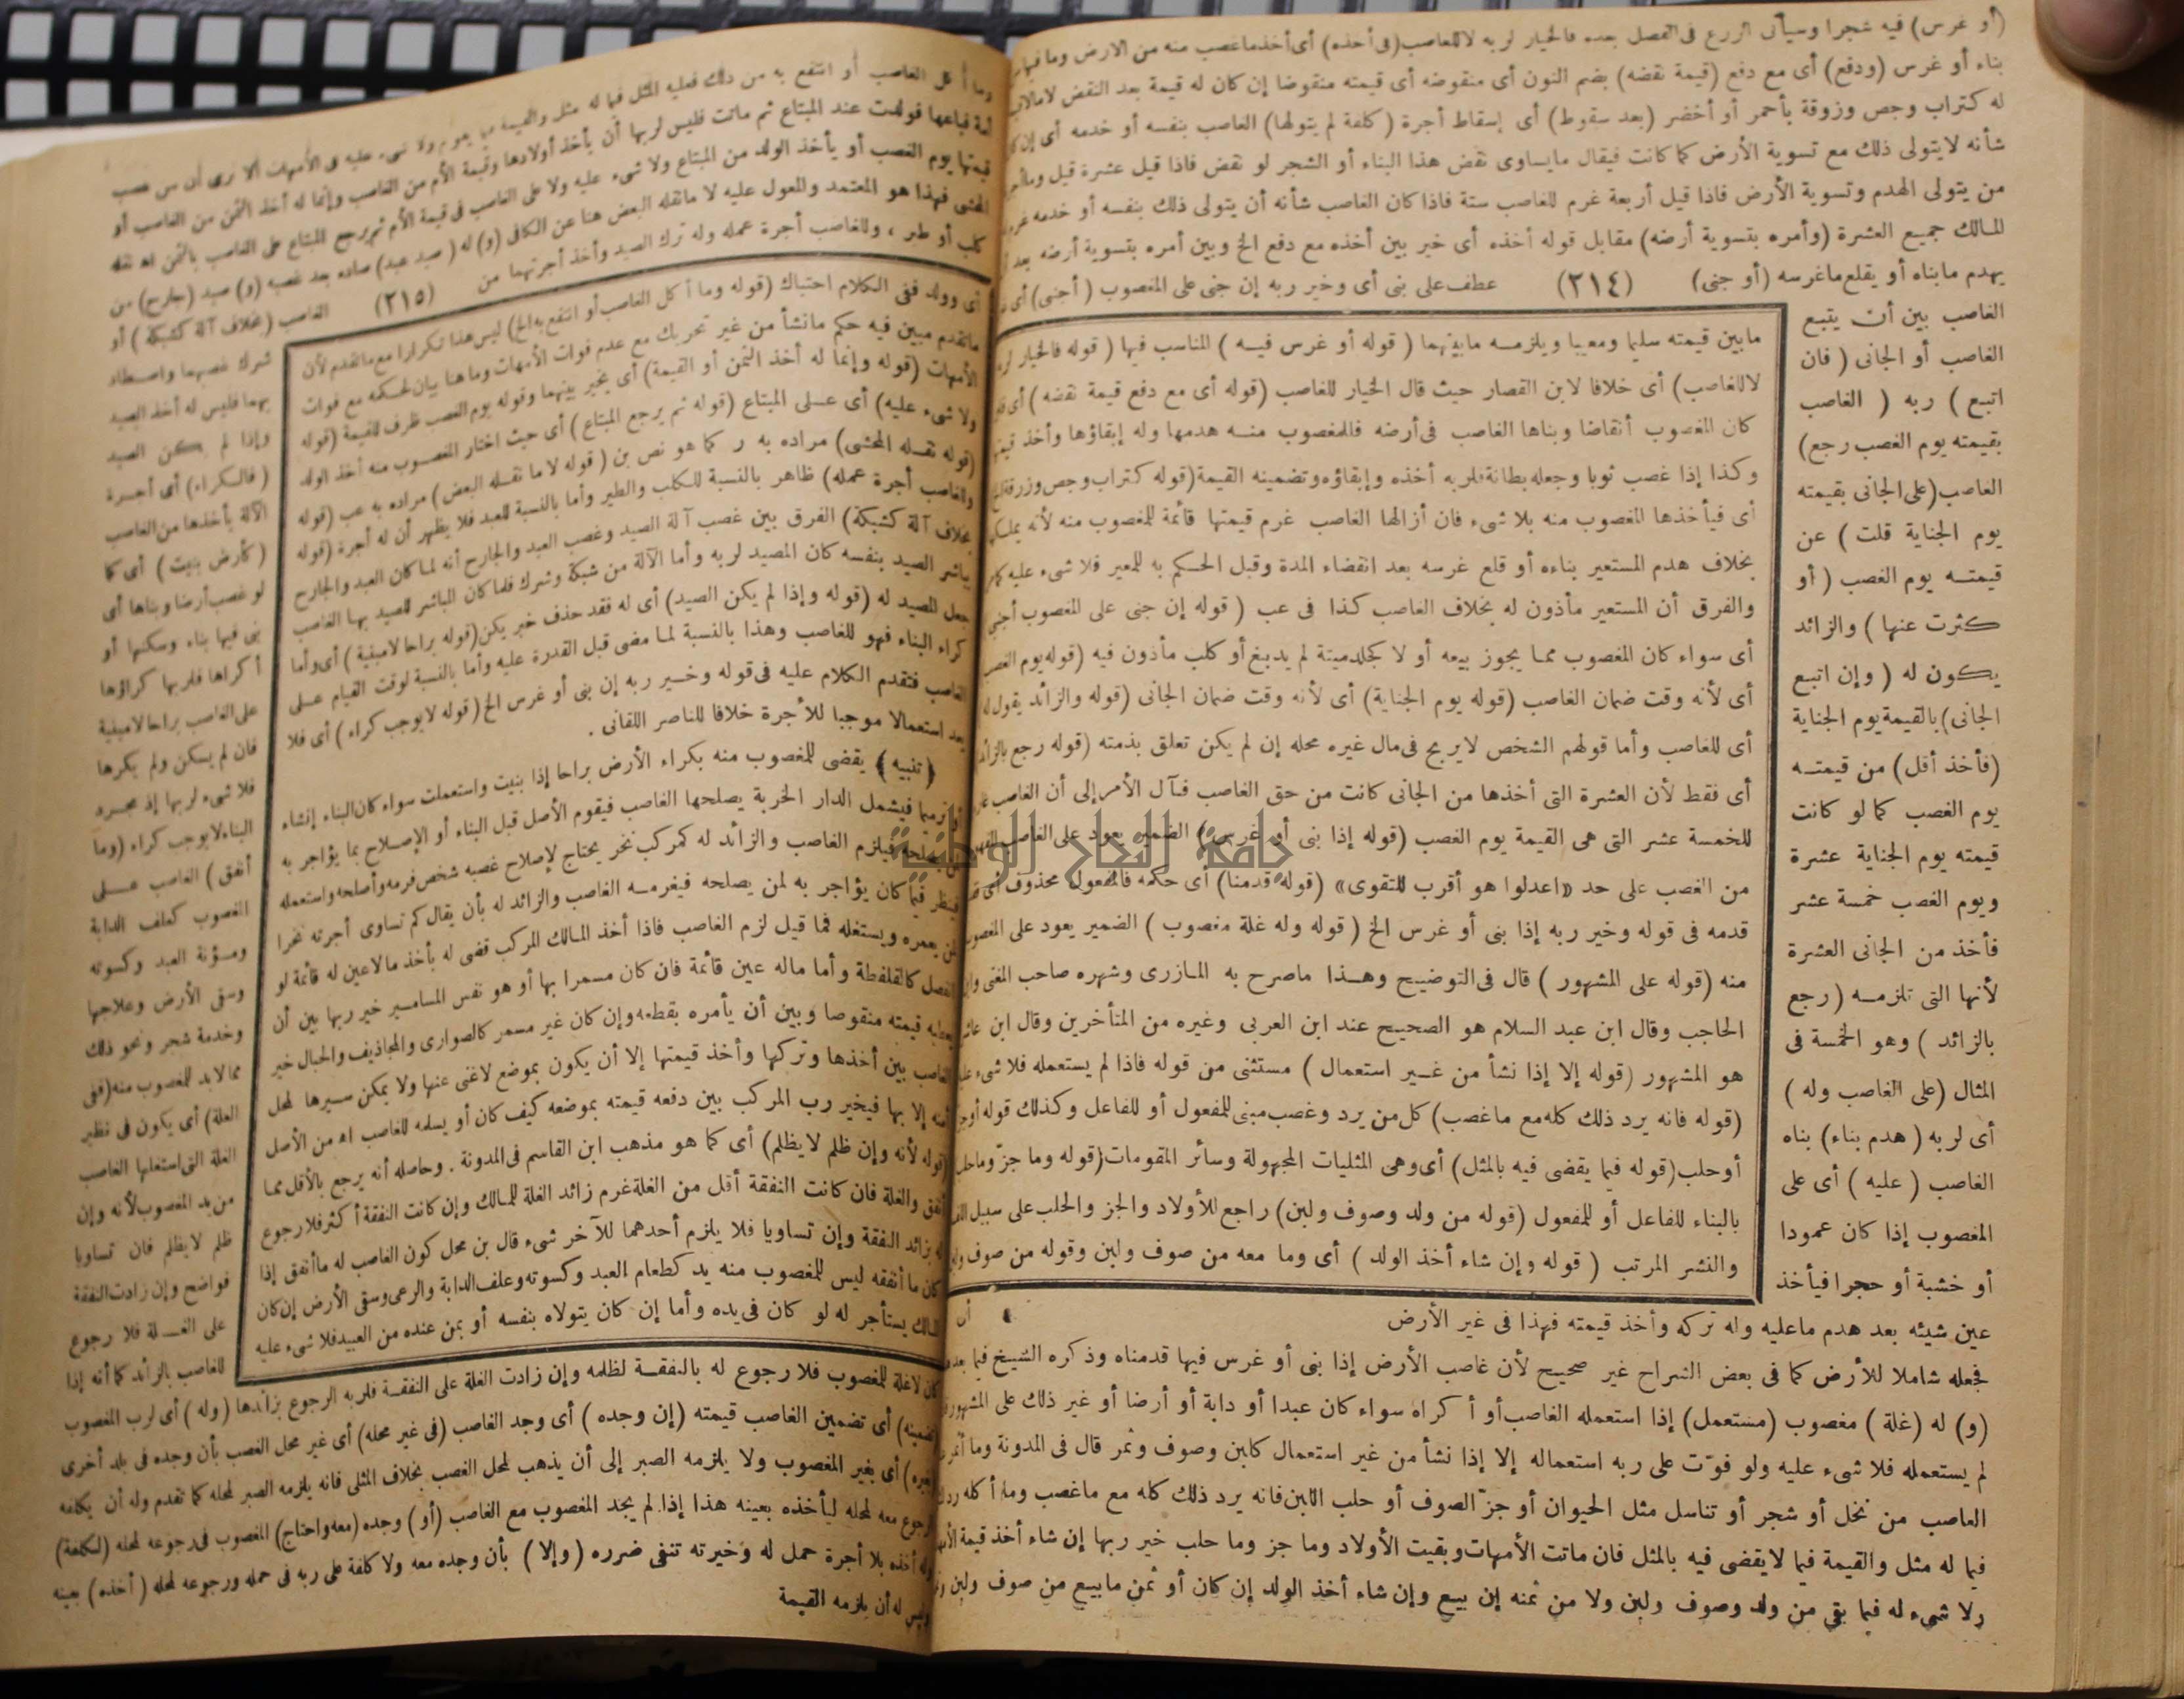 (أو غرس) فيه شجرا وسيأتى الزرع فى الفصل بعده فالخيار لربه لا للغاصب (فى أخذه) أى أخذ ما غصب منه من الارض وما فيها من
بناء أو غرس (ودفع) أى مع دفع (قيمة نقضه) بضم النون أى منقوضه أى قيمته منقوضا إن كان له قيمة بعد النقض لا مالا
له كتراب وجص وزوقة بأحمر أو أخضر (بعد سقوط) أى إسقاط أجرة (كلفة لم يتولها) الغاصب بنفسه أو خدمه أى إن كان
شأنه لا يتولى ذلك مع تسوية الأرض كما كانت فيقال ما يساوى نقض هذا البناء أو الشجر لو نقض فاذا قيل عشرة قيل وما
من يتولى الهدم وتسوية الأرض فاذا قيل أربعة غرم للغاصب ستة فاذا كان الغاصب شأنه أن يتولى ذلك بنفسه أو خدمه غرم
المالك جميع العشرة (وأمره بتسوية أرضه) مقابل قوله أخذه أى خير بين أخذه مع دفع الخ وبين أمره بتسوية أرضه بعد
يهدم ما بناه أو يقلع ما غرسه (أو جنى) (٢١٤) عطف على بنى أى وخير ربه إن جنى على المغصوب (أجنبى) أى
الغاصب بين أن يتبع
الغاصب أو الجانى (فان
اتبع) ربه (الغاصب
بقيمته يوم الغصب رجع)
الغاصب (على الجانى بقيمته
يوم الجناية قلت) عن
قيمته يوم الغصب (أو
كثرت عنها) والزائد
يكون له (وإن اتبع
الجانى) بالقيمة يوم الجناية
(فأخذ أقل) من قيمته
يوم الغصب كما لو كانت
قيمته يوم الجناية عشرة
ويوم الغصب خمسة عشر
فأخذ من الجانى العشرة
لأنها التى تلزمه (رجع
بالزائد) وهو الخمسة فى
المثال (على الغاصب وله)
أى لربه (هدم بناء) بناه
الغاصب (عليه) أى على
المغصوب إذا كان عمودا
أو خشبة أو حجرا فيأخذ
عين شيئه بعد هدم ما عليه وله تركه وأخذ قيمته فهذا فى غير الأرض
فجعله شاملا للأرض كما فى بعض الشراح غير صحيح لأن غاصب الأرض إذا بنى أو غرس فيها قدمناه وذكره الشيخ فيما بعده
(و) له (غلة) مغصوب (مستعمل) إذا استعمله الغاصب أو أكراه سواء كان عبدا أو دابة أو أرضا أو غير ذلك على المشهور
لم يستعمله فلا شىء عليه ولو فوّت على ربه استعماله إلا إذا نشأ من غير استعمال كلبن وصوف وثمر قال فى المدونة وما أثمر
الغاصب من نخل أو شجر أو تناسل مثل الحيوان أو جزّ الصوف أو حلب اللبن فانه يرد ذلك كله مع ما غصب وما أكله رد
فيما له مثل والقيمة فيما لا يقضى فيه بالمثل فان ماتت الأمهات وبقيت الأولاد وما جز وما حلب خير ربها إن شاء أخذ قيمة الأمهات
ولا شىء له فيما بقى من ولد وصوف ولبن ولا من ثمنه إن بيع وإن شاء أخذ الولد إن كان أو ثمن ما بيع من صوف ولبن
ما بين قيمته سليما ومعيبا ويلزمه ما بينهما (قوله أو غرس فيه) المناسب فيها (قوله فالخيار لربه
لا للغاصب) أى خلافا لابن القصار حيث قال الخيار للغاصب (قوله أى مع دفع قيمة نقضه) أى
كان المغصوب أنقاضا وبناها الغاصب فى أرضه فللمغصوب منه هدمها وله إبقاؤها وأخذ قيمتها
وكذا إذا غصب ثوبا وجعله بطانة فلربه أخذه وإبقاؤه وتضمينه القيمة (قوله كتراب وجص وزوقة)
أى فيأخذها المغصوب منه بلا شىء فان أزالها الغاصب غرم قيمتها قائمة للمغصوب منه لأنه يملكها
بخلاف هدم المستعير بناءه أو قلع غرسه بعد انقضاء المدة وقبل الحكم به للمعير فلا شىء عليه كما مر
والفرق أن المستعير مأذون له بخلاف الغاصب كذا فى عب (قوله إن جنى على المغصوب أجنبى)
أى سواء كان المغصوب مما يجوز بيعه أو لا كجلد ميتة لم يدبغ أو كلب مأذون فيه (قوله يوم الغصب)
أى لأنه وقت ضمان الغاصب (قوله يوم الجناية) أى لأنه وقت ضمان الجانى (قوله والزائد يقول له
أى للغاصب وأما قولهم الشخص لا يربح فى مال غيره محله إن لم يكن تعلق بذمته (قوله رجع بالزائد)
أى فقط لأن العشرة التى أخذها من الجانى كانت من حق الغاصب فآل الأمر إلى أن الغاصب
للخمسة عشر التى هى القيمة يوم الغصب (قوله إذا بنى أو غرس) الضمير يعود على الغاصب
من الغصب على حد «اعدلوا هو أقرب للتقوى» (قوله قدمنا) أى حكمه فالمفعول محذوف أى
قدمه فى قوله وخير ربه إذا بنى أو غرس الخ (قوله وله غلة مغصوب) الضمير يعود على المغصوب
منه (قوله على المشهور) قال فى التوضيح وهذا ما صرح به المازرى وشهره صاحب المغنى وابن
الحاجب وقال ابن عبد السلام هو الصحيح عند ابن العربى وغيره من المتأخرين وقال ابن عاشر
هو المشهور (قوله إلا إذا نشأ من غير استعمال) مستثنى من قوله فاذا لم يستعمله فلا شىء عليه
(قوله فانه يرد ذلك كله مع ما غصب) كل من يرد وغصب مبنى للمفعول أو للفاعل وكذلك قوله أو جز
أو حلب (قوله فيما يقضى فيه بالمثل) أى وهى المثليات المجهولة وسائر المقومات (قوله وما جزّ وما حلب)
بالبناء للفاعل أو للمفعول (قوله من ولد وصوف ولبن) راجع للأولاد والجز والحلب على سبيل اللف
والنشر المرتب (قوله وإن شاء أخذ الولد) أى وما معه من صوف ولبن وقوله من صوف
أن
جامعة النجاح الوطنية
وما أكل الغاصب أو انتفع به من ذلك فعليه المثل فيما له مثل والقيمة فيما يقوم ولا شىء عليه فى الأمهات ألا ترى أن من غصب
أمة فباعها فولدت عند المبتاع ثم ماتت فليس لربها أن يأخذ أولادها وقيمة الأم من الغاصب وإنما له أخذ الثمن من الغاصب أو
قيمتها يوم الغصب أو يأخذ الولد من المبتاع ولا شىء عليه ولا على الغاصب فى قيمة الأم ثم يرجع المبتاع على الغاصب بالثمن اه نقله
المحشى فهذا هو المعتمد والمعول عليه لا ما نقله البعض هنا عن الكافى (و) له (صيد عبد) صاده بعد غصبه (و) صيد (جارح) من
كلب أو طير ، وللغاصب أجرة عمله وله ترك الصيد وأخذ أجرتهما من (٢١٥) الغاصب (بخلاف آلة كشبكة) أو
شرك غصبهما واصطاد
بهما فليس له أخذ الصيد
وإذا لم يكن الصيد
(فالكراء) أى أجرة
الآلة يأخذها من الغاصب
(كأرض بنيت) أى كما
لو غصب أرضا وبناها أى
بنى فيها بناء وسكنها أو
أكراها فلربها كراؤها
على الغاصب براحا لا مبنية
فان لم يسكن ولم يكرها
فلا شىء لربها إذ مجرد
البناء لا يوجب كراء (وما
أنفق) الغاصب على
المغصوب كعلف الدابة
ومؤنة العبد وكسوته
وسقى الأرض وعلاجها
وخدمة شجر ونحو ذلك
مما لابد للمغصوب منه (فى
الغلة) أى يكون فى نظير
الغلة التى استغلها الغاصب
من يد المغصوب لأنه وإن
ظلم لا يظلم فان تساويا
فواضح وإن زادت النفقة
على الغلة فلا رجوع
للغاصب بالزائد كما أنه إذا
كان لا غلة للمغصوب فلا رجوع له بالنفقة لظلمه وإن زادت الغلة على النفقة فلربه الرجوع بزائدها (وله) أى لرب المغصوب
(تضمينه) أى تضمين الغاصب قيمته (إن وجده) أى وجد الغاصب (فى غير محله) أى غير محل الغصب بأن وجده فى بلد أخرى
(بغيره) أى بغير المغصوب ولا يلزمه الصبر إلى أن يذهب لمحل الغصب بخلاف المثلى فانه يلزمه الصبر لمحله كما تقدم وله أن يكلفه
الرجوع معه لمحله ليأخذه بعينه هذا إذا لم يجد المغصوب مع الغاصب (أو) وجده (معه واحتاج) المغصوب فى رجوعه لمحله (لكلفة)
وله أخذه بلا أجرة حمل له وخيرته تنفى ضرره (وإلا) بأن وجده معه ولا كلفة على ربه فى حمله ورجوعه لمحله (أخذه) بعينه
وليس له أن يلزمه القيمة
أى وولد ففى الكلام احتباك (قوله وما أكل الغاصب أو انتفع به الخ) ليس هذا تكرارا مع ما تقدم لأن
ما تقدم مبين فيه حكم ما نشأ من غير تحريك مع عدم فوات الأمهات وما هنا بيان لحكمه مع فوات
الأمهات (قوله وإنما له أخذ الثمن أو القيمة) أى يخير بينهما وقوله يوم الغصب ظرف للقيمة (قوله
ولا شىء عليه) أى على المبتاع (قوله ثم يرجع المبتاع) أى حيث اختار المغصوب منه أخذ الولد
(قوله نقله المحشى) مراده به ر كما هو نص بن (قوله لا ما نقله البعض) مراده به عب (قوله
وللغاصب أجرة عمله) ظاهر بالنسبة للكلب والطير وأما بالنسبة للعبد فلا يظهر أن له أجرة (قوله
بخلاف آلة كشبكة) الفرق بين غصب آلة الصيد وغصب العبد والجارح أنه لما كان العبد والجارح
يباشر الصيد بنفسه كان المصيد لربه وأما الآلة من شبكة وشرك فلما كان المباشر للصيد بها الغاصب
جعل المصيد له (قوله وإذا لم يكن الصيد) أى له فقد حذف خبر يكن (قوله براحا لا مبنية) أى وأما
كراء البناء فهو للغاصب وهذا بالنسبة لما مضى قبل القدرة عليه وأما بالنسبة لوقت القيام على
الغاصب فتقدم الكلام عليه فى قوله وخير ربه إن بنى أو غرس الخ (قوله لا يوجب كراء) أى فلا
يعد استعمالا موجبا للأجرة خلافا للناصر اللقانى .
(تنبيه) يقضى للمغصوب منه بكراء الأرض براحا إذا بنيت واستعملت سواء كان البناء إنشاء
أو ترميما فيشمل الدار الخربة يصلحها الغاصب فيقوم الأصل قبل البناء أو الإصلاح بما يؤاجر به
لمن يصلحه فيلزم الغاصب والزائد له كمركب نخر يحتاج لإصلاح غصبه شخص فرمه وأصلحه واستعمله
فينظر فيما كان يؤاجر به لمن يصلحه فيغرمه الغاصب والزائد له بأن يقال كم تساوى أجرته نخرا
لمن يعمره ويستغله فما قيل لزم الغاصب فاذا أخذ المالك المركب قضى له بأخذ ما لا عين له قائمة لو
انفصل كالقلفطة وأما ماله عين قائمة فان كان مسمرا بها أو هو نفس المسامير خير ربها بين أن
يعطيه قيمته منقوضا وبين أن يأمره بقطعه وإن كان غير مسمر كالصوارى والمجاذيف والحبال خير
الغاصب بين أخذها وتركها وأخذ قيمتها إلا أن يكون بموضع لا غنى عنها ولا يمكن سيرها لمحل
أمنه إلا بها فيخير رب المركب بين دفعه قيمته بموضعه كيف كان أو يسلمه للغاصب اه من الأصل
(قوله لأنه وإن ظلم لا يظلم) أى كما هو مذهب ابن القاسم فى المدونة . وحاصله أنه يرجع بالأقل مما
أنفق والغلة فان كانت النفقة أقل من الغلة غرم زائد الغلة للمالك وإن كانت النفقة أكثر فلا رجوع
له بزائد النفقة وإن تساويا فلا يلزم أحدهما للآخر شىء قال بن محل كون الغاصب له ما أنفق إذا
كان ما أنفقه ليس للمغصوب منه بد كطعام العبد وكسوته وعلف الدابة والرعى وسقى الأرض إن كان
المالك يستأجر له لو كان فى يده وأما إن كان يتولاه بنفسه أو بمن عنده من العبيد فلا شىء عليه